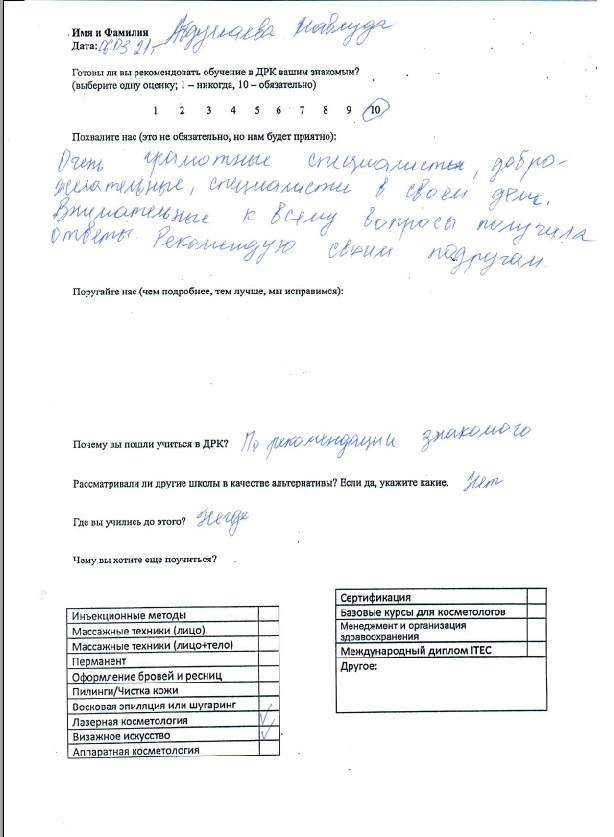 Имя и Фамилия Абдулаева
Дата: 06.03.21г
Готовы ли вы рекомендовать обучение в ДРК вашим знакомым?
(выберите одну оценку; 1 – никогда, 10 – обязательно)
1 2 3 4 5 6 7 8 9 10
Похвалите нас (это не обязательно, но нам будет приятно):
Очень грамотные специалисты, добро-
желательные, специалисты в своем деле.
Внимательные к всему вопросы получила
ответы. Рекомендую своим подругам
Поругайте нас (чем подробнее, тем лучше, мы исправимся):
Почему вы пошли учиться в ДРК? По рекомендации знакомого
Рассматривали ли другие школы в качестве альтернативы? Если да, укажите какие. Нет
Где вы учились до этого? Негде
Чему вы хотите еще поучиться?
Инъекционные методы
Массажные техники (лицо)
Массажные техники (лицо+тело)
Перманент
Оформление бровей и ресниц
Пилинги/Чистка кожи
Восковая эпиляция или шугаринг
Лазерная косметология
Визажное искусство
Аппаратная косметология
Сертификация
Базовые курсы для косметологов
Менеджмент и организация
здравоохранения
Международный диплом ITEC
Другое: